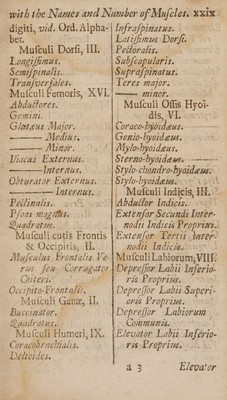 with the Names and Number of Muscles. xxix
digiti, vid. Ord. Alpha-
bet.
Musculi Dorsi, III.
Longissimus.
Semispinalis.
Transversales.
Musculi Femoris, XVI.
Abductores.
Gemini.
Glutæus Major.
—— Medius.
—— Minor.
Iliacus Externus.
—— Internus.
Obturator Externus.
—— Internus.
Pectinalis.
Psoas magnus.
Quadratus.
Musculi cutis Frontis
& Occipitis, II.
Musculus Frontalis Ve-
rus seu Corrugator
Coiteri.
Occipito-Frontalis.
Musculi Genæ, II.
Buccinator.
Quadratus.
Musculi Humeri, IX.
Coracobrachialis.
Deltoides.
Infraspinatus.
Latissimus Dorsi.
Pectoralis.
Subscapularis.
Supraspinatus.
Teres major.
—— minor.
Musculi Ossis Hyoi-
dis, VI.
Coraco-hyoidæus.
Genio-hyoidæus.
Mylo-hyoidæus.
Sterno-hyoidæus.
Stylo-chondro-hyoidæus.
Stylo-hyoidæus.
Musculi Indicis, III.
Abductor Indicis.
Extensor Secundi Inter-
nodii Indicis Proprius.
Extensor Tertii inter-
nodii Indicis.
Musculi Labiorum, VIII.
Depressor Labii Inferio-
ris Proprius.
Depressor Labii Superi-
oris Proprius.
Depressor Labiorum
Communis.
Elevator Labii Inferio-
ris Proprius.
a 3 Elevator